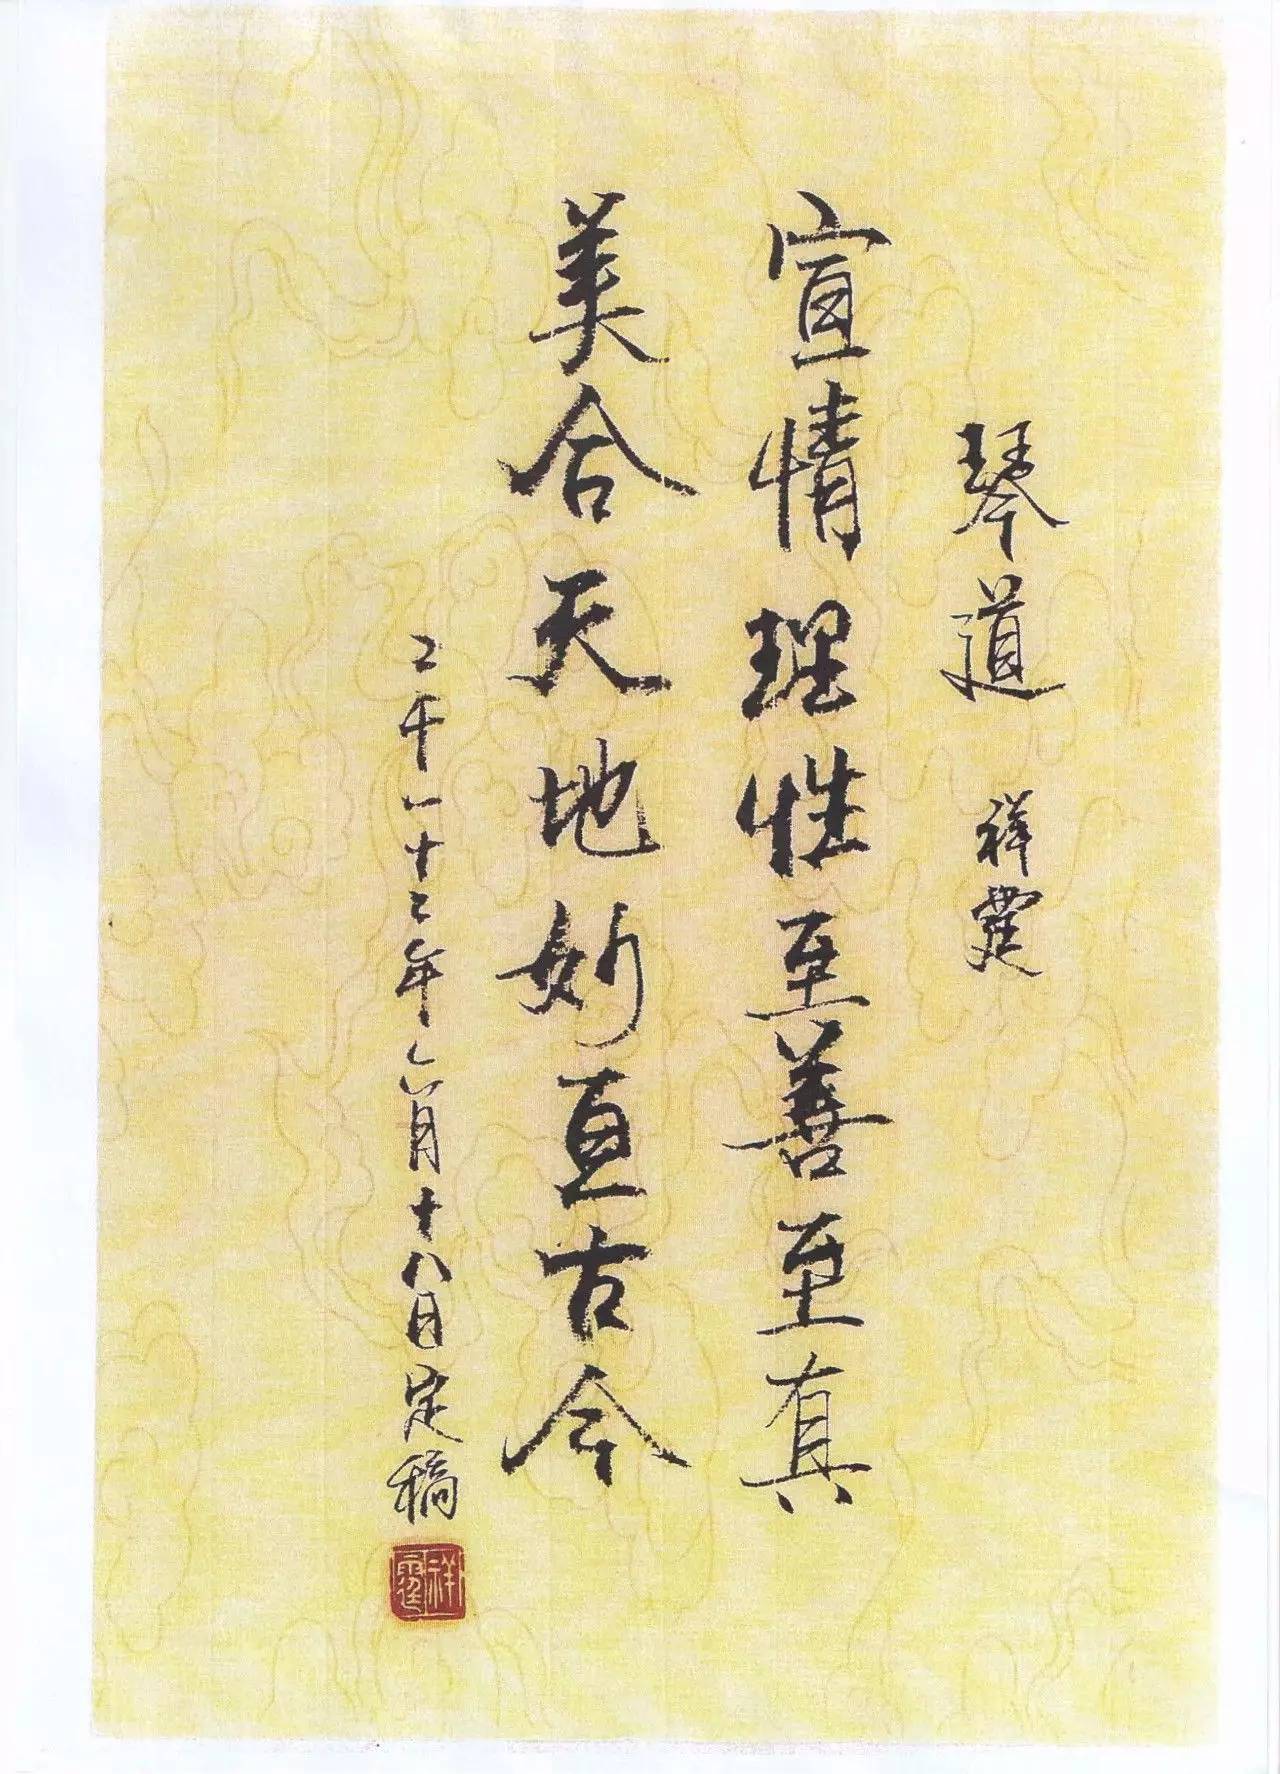 琴道 祥霆
宣情理性至善至真
美合天地妙亘古今
二千一十二年六月十八日定稿
祥霆